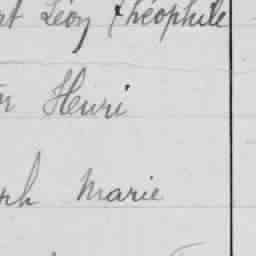 Léon Théophile
Henri
Marie